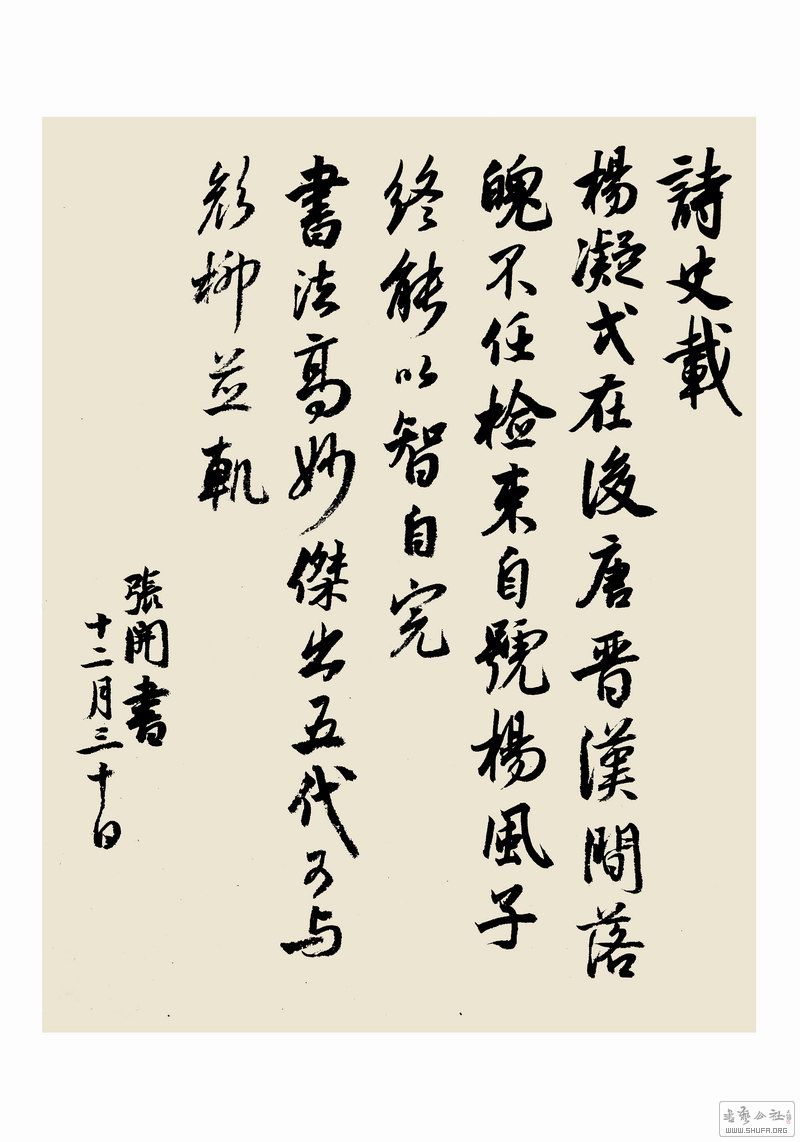 詩史載
楊凝式在後唐晉漢間落
魄不任檢束自號楊風子
終能以智自完
書法高妙傑出五代可与
顏柳並軌
張開書
十二月三十日
書藝公社
WWW.SHUFA.ORG